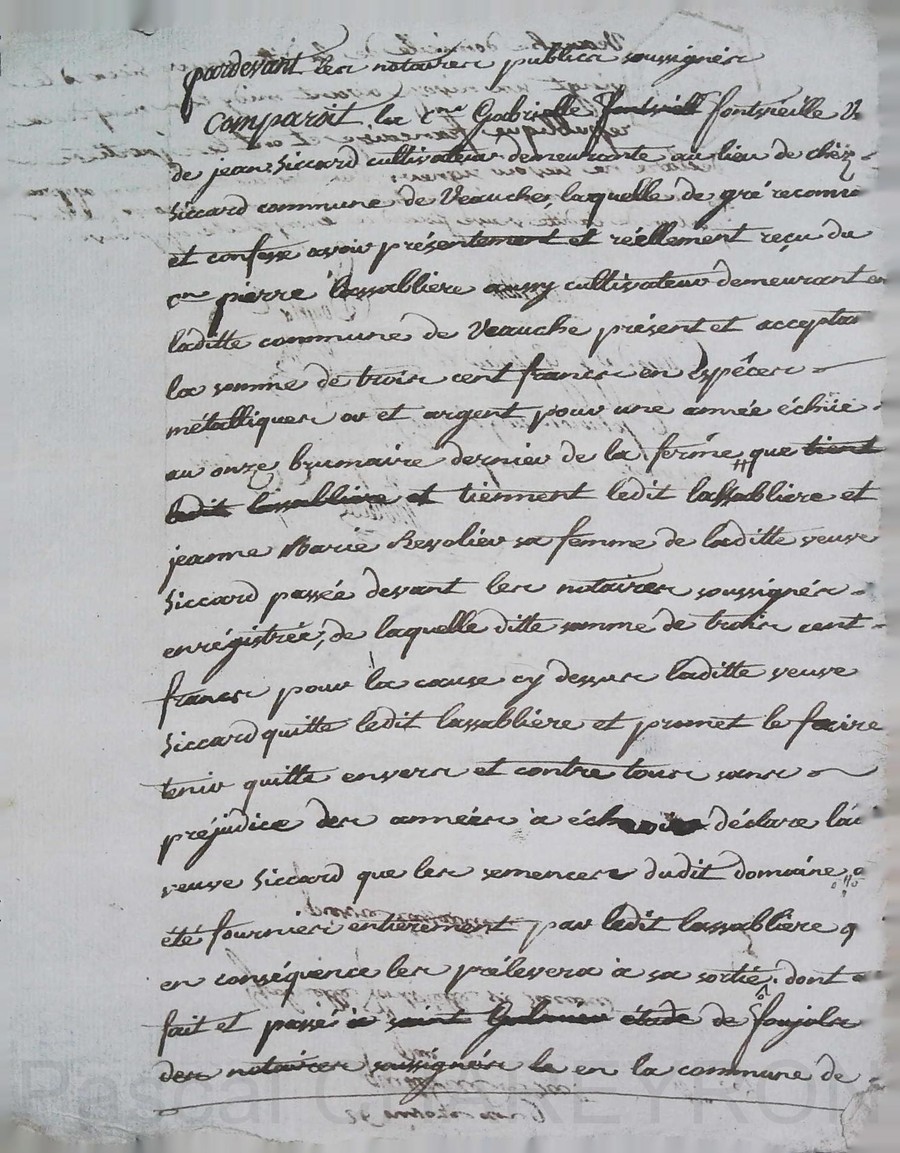 pardevant les notaires publics soussignés
comparoit la c.ne Gabrielle fontvieille fontvieille V.
de jean Siccard cultivateur demeurante au lieu de chèz
Siccard commune de Veauche, laquelle de gré reconnu
et confesse avoir présentement et réellement reçu du
c.en pierre lassabliere aussy cultivateur demeurant en
laditte commune de Veauche présent et accepta
la somme de trois cent francs en Espéces
métalliques or et argent pour une année échüe
au onze brumaire dernier de la ferme que tient
ledit lassabliere et tiennent ledit lassabliere et
jeanne Marie Revolier sa femme de laditte veuve
Siccard passée devant les notaires soussignés
enrégistrée, de laquelle ditte somme de trois cent
francs pour la cause cy dessus laditte veuve
Siccard quitte ledit lassabliére et promet le faire
tenir quitte envers et contre tous sans
préjudice des années à déclare la
veuve Siccard que les semences dudit domaine
été fournies entièrement par ledit lassabliere q
en conséquence les prélevera à sa sortie. dont
fait et passé à saint Galmier étude de foujols
des notaires soussignés le en la commune de
Pascal CHAREYRON